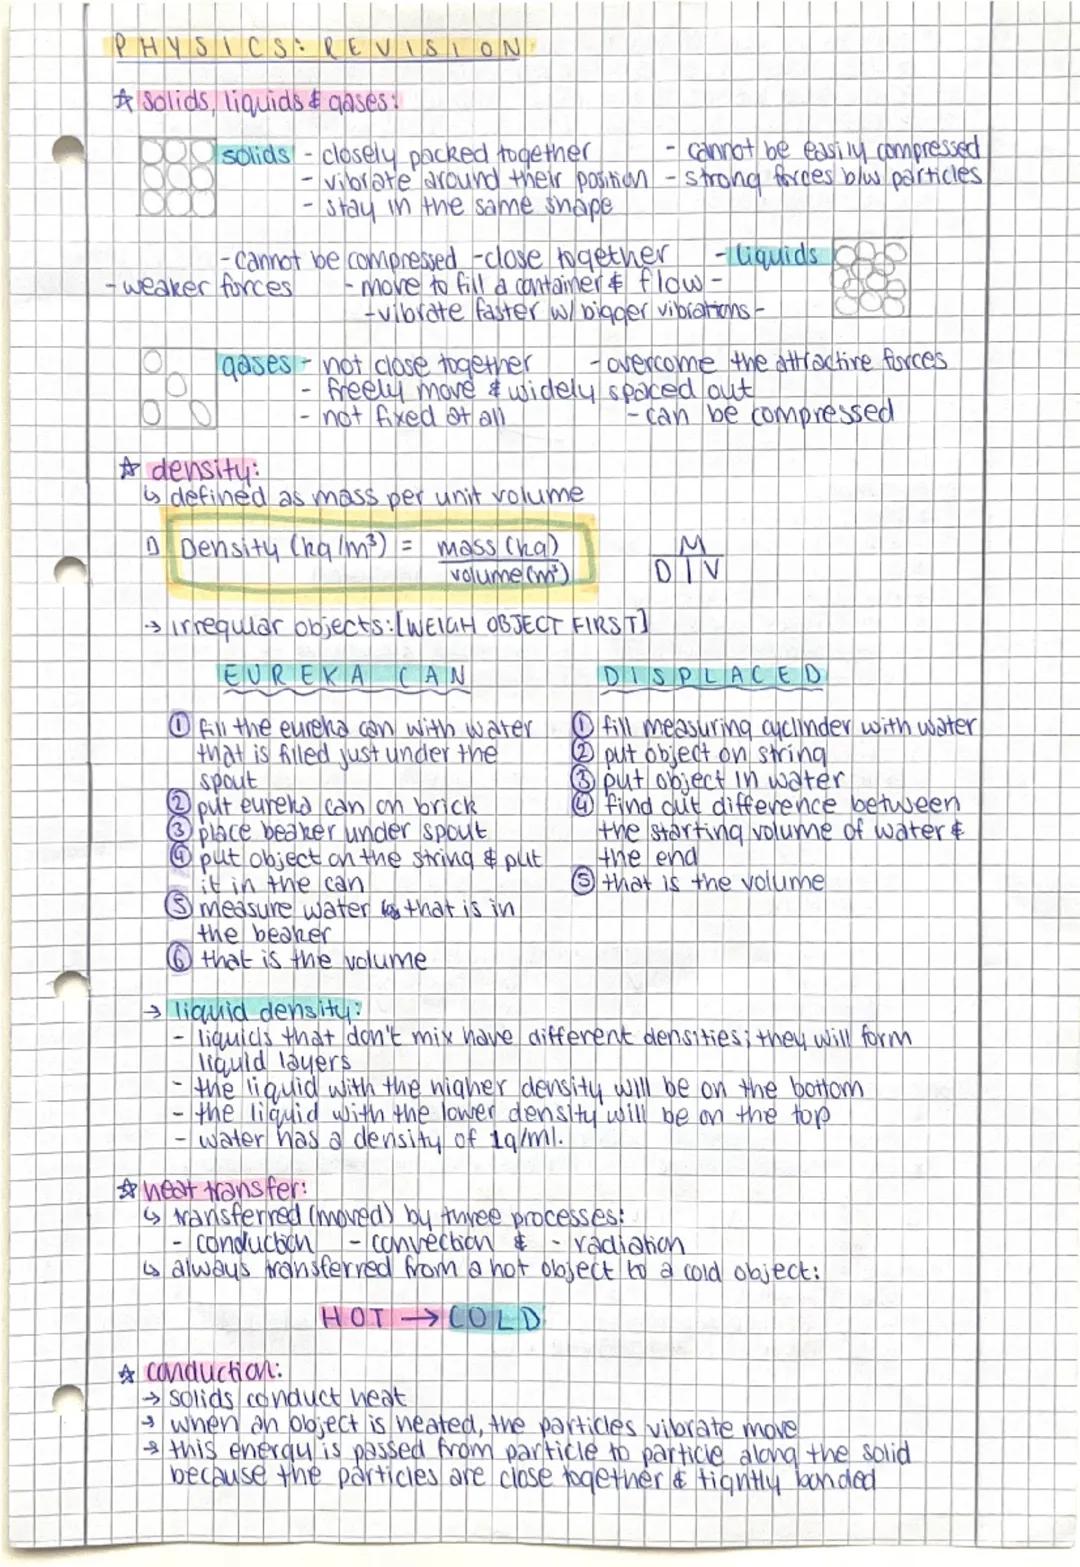 PHYSICS: REVISION
☆ solids, liquids & gases:
solids - closely packed together - cannot be easily compressed
- vibrate around their position - strong forces b/w particles
- stay in the same shape
- cannot be compressed - close together - liquids
- weaker forces - move to fill a container & flow -
- vibrate faster w/ bigger vibrations -
gases - not close together - overcome the attractive forces
- freely move & widely spaced out
- not fixed at all - can be compressed
☆ density:
↳ defined as mass per unit volume
Density (kg/m³) = mass (kg)
volume (m³)
M
D V
→ irregular objects: [WEIGH OBJECT FIRST]
EUREKA CAN
① fill the eureka can with water
that is filled just under the
spout
② put eureka can on brick
③ place beaker under spout
④ put object on the string & put
it in the can
⑤ measure water that is in
the beaker
⑥ that is the volume
DISPLACED
① fill measuring cyclinder with water
② put object on string
③ put object in water
④ find out difference between
the starting volume of water &
the end
⑤ that is the volume
→ liquid density:
- liquids that don't mix have different densities; they will form
liquid layers
- the liquid with the higher density will be on the bottom
- the liquid with the lower density will be on the top
- water has a density of 1g/ml.
☆ heat transfer:
↳ transferred (moved) by three processes:
- conduction - convection & - radiation
↳ always transferred from a hot object to a cold object:
HOT → COLD
☆ conduction:
→ solids conduct heat
→ when an object is heated, the particles vibrate move
→ this energy is passed from particle to particle along the solid
because the particles are close together & tightly bonded